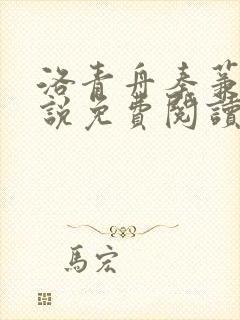 洛青舟秦蒹
說免費閱讀
馬宏